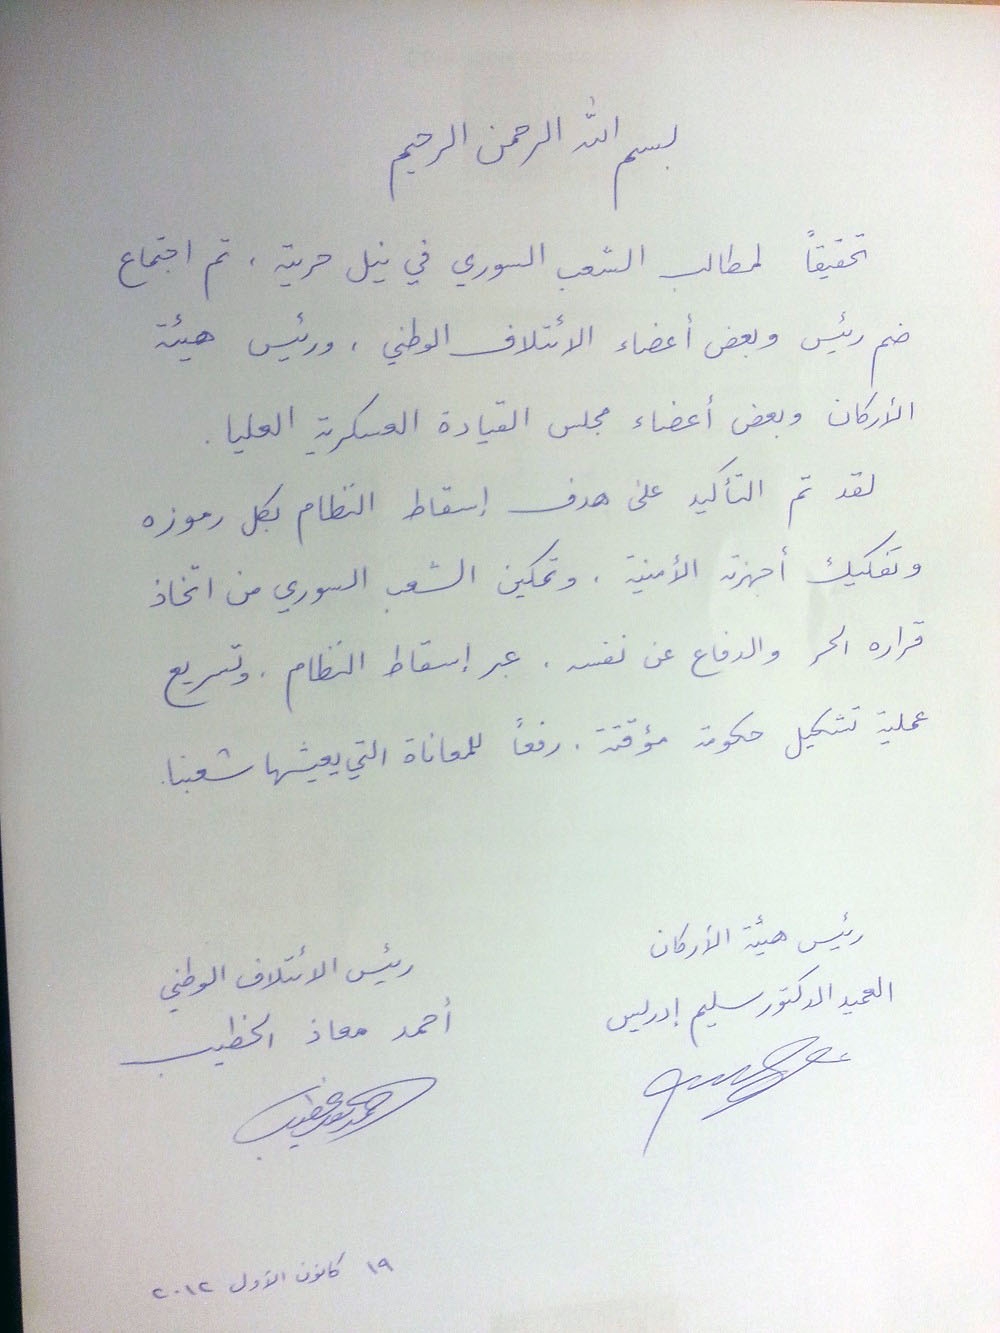 بسم الله الرحمن الرحيم
تحقيقاً لمطالب الشعب السوري في نيل حريته ، تم اجتماع
ضم رئيس وبعض أعضاء الائتلاف الوطني ، ورئيس هيئة
الأركان وبعض أعضاء مجلس القيادة العسكرية العليا .
لقد تم التأكيد على هدف إسقاط النظام بكل رموزه
وتفكيك أجهزته الأمنية ، وتمكين الشعب السوري من اتخاذ
قراره الحر والدفاع عن نفسه ، عبر إسقاط النظام ، وتسريع
عملية تشكيل حكومة مؤقتة ، رفعاً للمعاناة التي يعيشها شعبنا .
رئيس هيئة الأركان
العميد الدكتور سليم إدريس
رئيس الائتلاف الوطني
أحمد معاذ الخطيب
١٩ كانون الأول ٢٠١٢